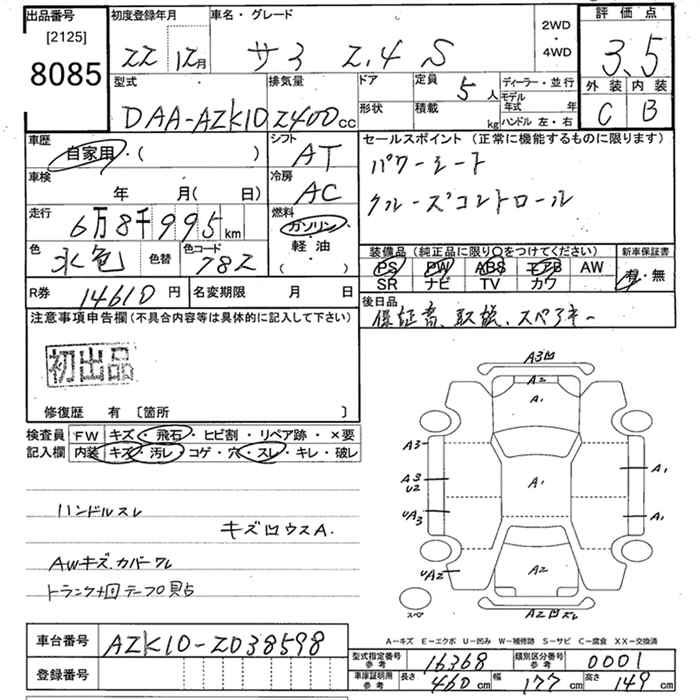 出品番号 初度登録年月 車名・グレード 2WD 評価点
[2125] ・
8085 22 12月 サイ 2.4 S 4WD 3.5
型式 排気量 ドア 定員 5人 ディーラー・並行 外装 内装
DAA-AZK10 2400cc 形状 積載 kg モデル年式 年 C B
ハンドル 左・右
車歴 シフト セールスポイント (正常に機能するものに限ります)
自家用・( ) AT パワーシート
車検 冷房 クルーズコントロール
年 月( 日) AC
走行 燃料
6万8千995km ガソリン・
色 水色 色替 色コード 782 軽油 装備品 (純正品に限り○をつけてください) 新車保証書
(・ ) PS PW ABS エアB AW 有・無
R券 14610円 名変期限 月 日 SR ナビ TV カワ
注意事項申告欄(不具合内容等は具体的に記入して下さい) 後日品
保証書、取説、スペアキー
初出品
修復歴 有 [箇所 ]
検査員 FW キズ・飛石・ヒビ割・リペア跡・×要
記入欄 内装 キズ・汚レ・コゲ・穴・スレ・キレ・破レ
ハンドルスレ
キズ凹ウスA.
AWキズ.カバーワレ
トランク凹テープ貼
A3凹
A2
A1
A3
A3
U2
A1
A1
UA3
A1
A2
UA2
スペア
A2凹スレ
A-キズ E-エクボ U-凹み W-補修跡 S-サビ C-腐食 XX-交換済
車台番号 AZK10-2038598
登録番号
型式指定番号 参考 16368 類別区分番号 参考 0001
車庫証明用 参考 長さ 460cm 幅 177cm 高さ 149cm